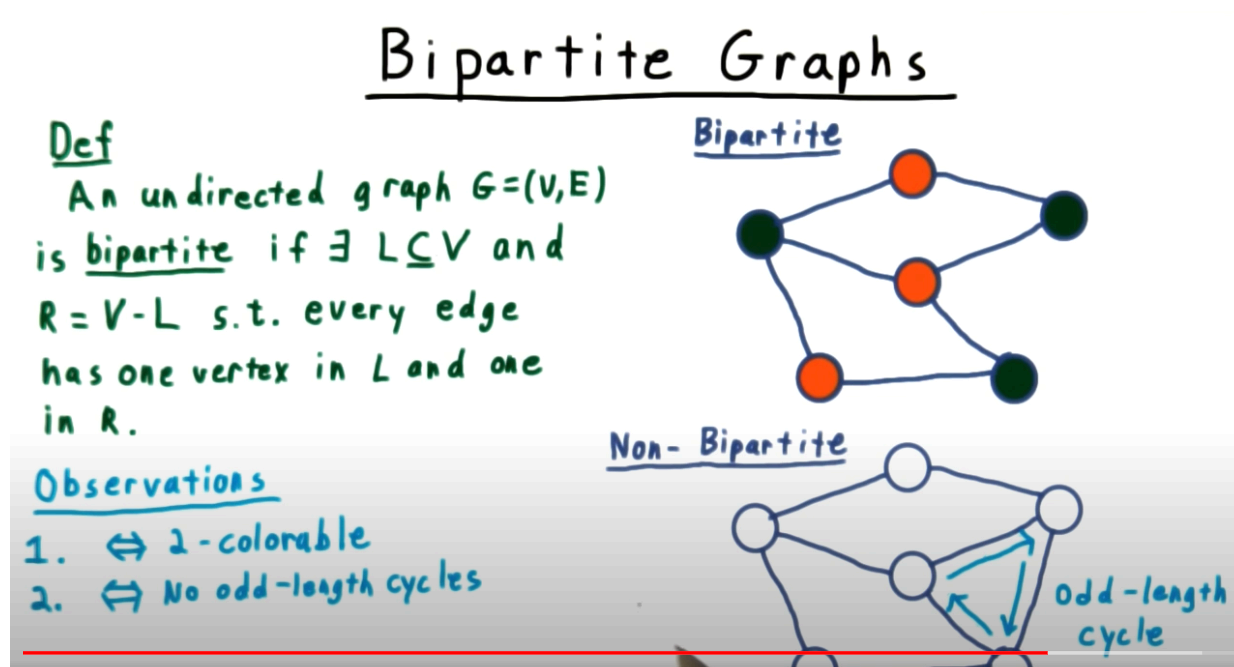 Bipartite Graphs
Def
An undirected graph G=(V,E)
is bipartite if ∃ L⊆V and
R = V-L s.t. every edge
has one vertex in L and one
in R.
Observations
1. ⇔ 2-colorable
2. ⇔ No odd-length cycles
Bipartite
Non-Bipartite
odd-length
cycle